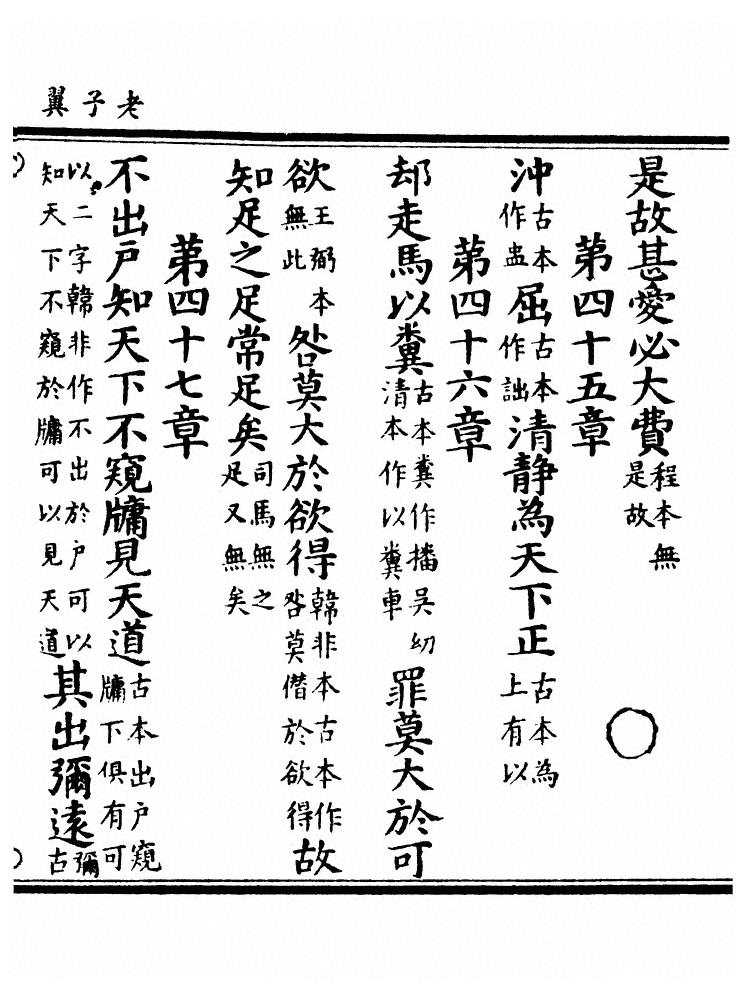 老子翼
是故甚愛必大費程本無是故
第四十五章
沖古本作盅屈古本作詘清靜為天下正古本為上有以
第四十六章
却走馬以糞古本糞作播吳幼清本作以糞車罪莫大於可
欲王弼本無此咎莫大於欲得韓非本古本作咎莫僭於欲得故
知足之足常足矣司馬無之足又無矣
第四十七章
不出戶知天下不窺牖見天道古本出戶窺牖下俱有可
以二字韓非作不出於戶可以知天下不窺於牖可以見天道其出彌遠彌古